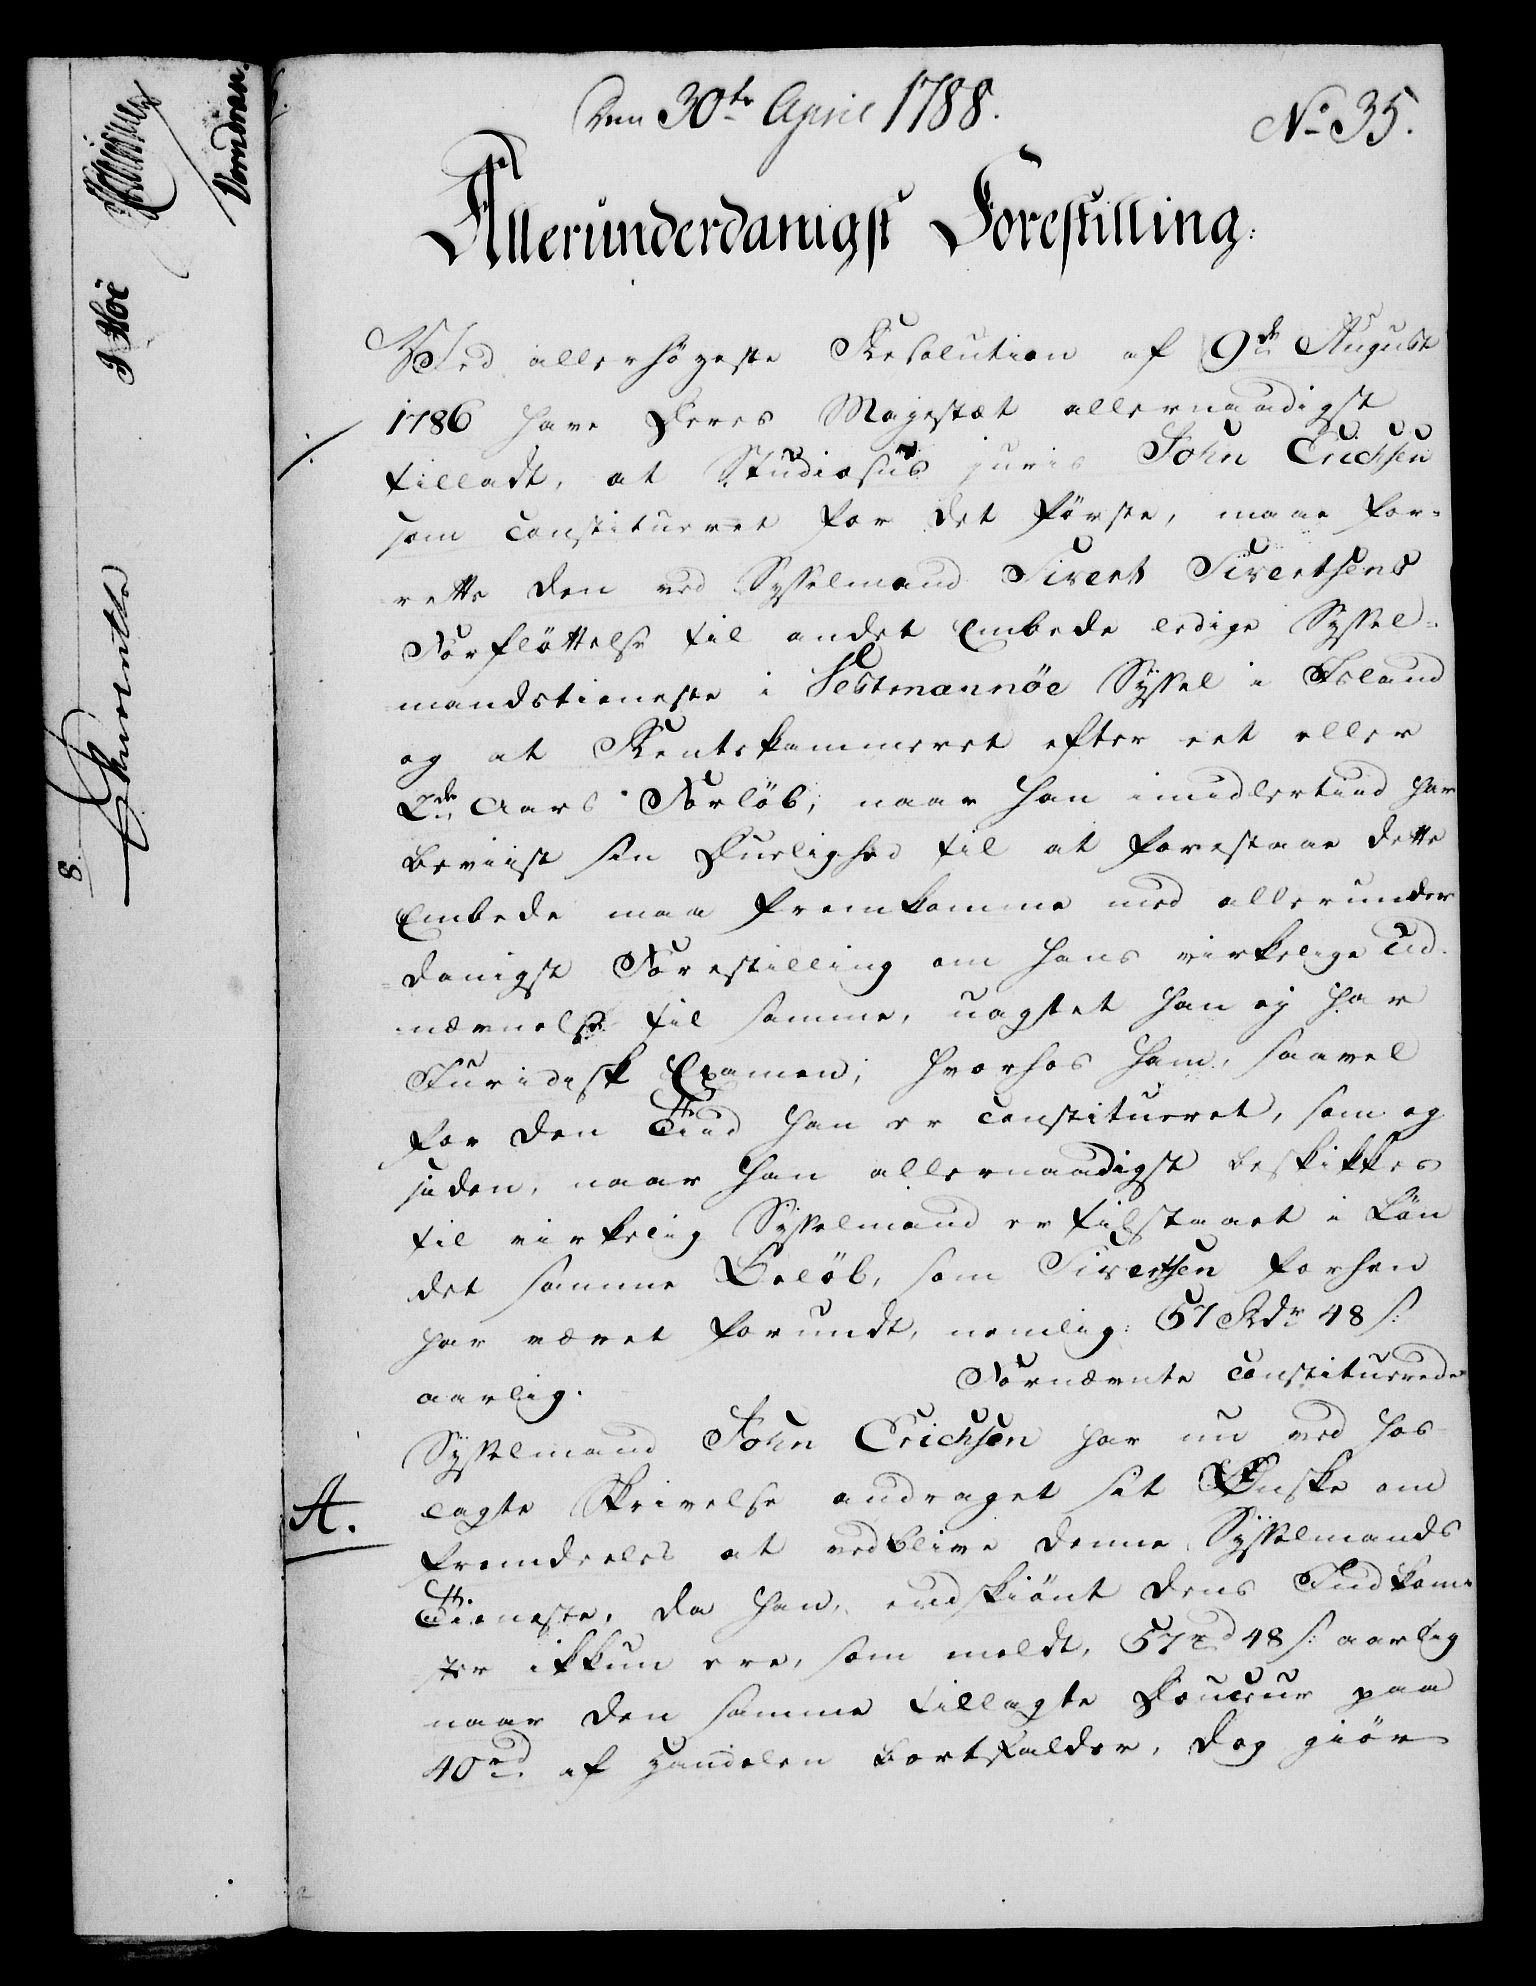 Den 30te April 1788.
No 35.
Allerunderdanigst Forestilling.
Ved allerhøyeste Resolution af 9de August
1786 have Deres Majestæt allernaadigst
tilladt, at Studiosus juris John Erichsen
som constitueret for det første, maae for-
rette den ved Sysselmand Sivert Sivertsens
Forfløttelse til andet Embede ledige Syssel-
mandstieneste i Vestmannöe Syssel i Island
og at Rentekammeret efter eet eller
2de Aars Forløb, naar han imidlertiid har
beviist sin Duelighed til at forestaae dette
Embede maa fremkomme med allerunder
danigst Forestilling om hans virkelige Ud-
nævnelse til samme, uagtet han ej har
Juridisk Examen; hvorhos ham, saavel
for den Tiid han er constitueret, som og
siden, naar han allernaadigst beskikkes
til virkelig Sysselmand er tilstaaet i Løn
det samme Beløb, som Sivertsen forhen
har været forundt, nemlig: 57 Rdr 48 s:
aarlig.
Fornævnte constituerede
Sysselmand John Erichsen har nu ved hos-
A.
lagte Skrivelse andraget sit Ønske om
fremdeeles at vedblive denne Sysselmands
Tieneste, da han, endskiønt dens Indkom-
ster ikkun ere, som meldt, 57 rd 48 s: aarlig
naar den samme tillagte Douceur paa
40 rd. af Handelen bortfalder, dog giør
8.
I Høe
Vomdran.